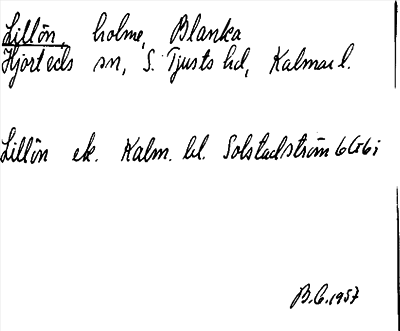 Lillön, holme, Blanka
Hjorteds sn, S. Tjusts hd, Kalmar l.
Lillön ek. Kalm. bl. Solstadström 6G6i
B.C. 1957